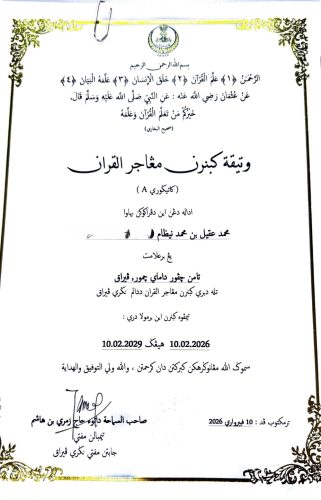 بسم الله الرحمن الرحيم
الرَّحْمَنُ ﴿١﴾ عَلَّمَ الْقُرْآنَ ﴿٢﴾ خَلَقَ الْإِنْسَانَ ﴿٣﴾ عَلَّمَهُ الْبَيَانَ ﴿٤﴾
عَنْ عُثْمَانَ رَضِيَ اللَّه عَنْهُ : عَنِ النَّبِيِّ صَلَّى اللَّه عَلَيْهِ وَسَلَّمَ قَالَ:
خَيْرُكُمْ مَنْ تَعَلَّمَ الْقُرْآنَ وَعَلَّمَهُ
(صحيح البخاري)
وثيقة كبنرن مڠاجر القران
(كاتيڬوري A)
اداله دڠن اين دڤراكوكي بهاوا
محمد عقيل بن محمد نيظام
يڠ برعلامت
تامن چڤور داماي چمور، ڤيراق
تله دبري كبنرن مڠاجر القران ددالم نڬري ڤيراق
تيمڤوه كبنرن اين برمولا دري :
10.02.2026 هيڠڬ 10.02.2029
سموڬ الله مڠانوڬرهكن كبركتن دان كرحمتن ، والله ولي التوفيق والهداية
ترمكتوب ڤد : 10 فبرواري 2026
صاحب السماحة داتوء حاج زمري بن هاشم
تيمبالن مفتي
جابتن مفتي نڬري ڤيراق